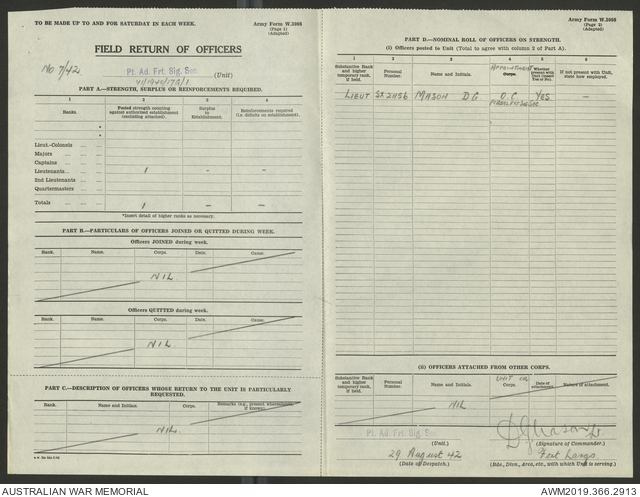 TO BE MADE UP TO AND FOR SATURDAY IN EACH WEEK.
Army Form W.3008
(Page 1)
(Adapted)
FIELD RETURN OF OFFICERS
No 7/42.
Pt. Ad. Frt. Sig. Sec. (Unit)
PART A.—STRENGTH, SURPLUS OR REINFORCEMENTS REQUIRED.
1 2 3 4
Ranks. Posted strength counting against authorized establishment (excluding attached). Surplus to Establishment. Reinforcements required (i.e. deficits on establishment).
*
*
Lieut.-Colonels
Majors
Captains
Lieutenants 1 –
2nd Lieutenants
Quartermasters
Totals 1 –
*Insert detail of higher ranks as necessary.
PART B.—PARTICULARS OF OFFICERS JOINED OR QUITTED DURING WEEK.
Officers JOINED during week.
Rank. Name. Corps. Date. Cause.
NIL
Officers QUITTED during week.
Rank. Name. Corps. Date. Cause.
NIL
PART C.—DESCRIPTION OF OFFICERS WHOSE RETURN TO THE UNIT IS PARTICULARLY
REQUESTED.
Rank. Name and Initials. Corps. Remarks (e.g., present whereabouts, if known).
NIL
Army Form W.3008
(Page 2)
(Adapted)
PART D.—NOMINAL ROLL OF OFFICERS ON STRENGTH.
(i) Officers posted to Unit (Total to agree with column 2 of Part A).
1 2 3 4 5 6
Substantive Rank and higher temporary rank, if held. Personal Number. Name and Initials. Appointment Corps. Whether present with Unit (insert Yes or No). If not present with Unit, state how employed.
LIEUT SX 21156 MASON D G O.C. YES –
(ii) OFFICERS ATTACHED FROM OTHER CORPS.
Substantive Rank and higher temporary rank, if held. Personal Number. Name and Initials. Unit or Corps. Date of attachment. Nature of attachment.
NIL
Pt. Ad. Frt. Sig. Sec.
(Unit.) (Signature of Commander.)
29 August 42 Fort Largs
(Date of Despatch.) (Bde., Divn., Area, etc., with which Unit is serving.)
AUSTRALIAN WAR MEMORIAL
AWM2019.366.2913